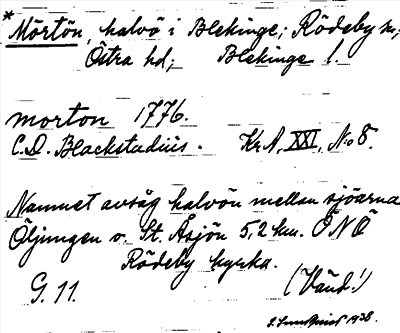 *Mörtön, halvö i Blekinge; Rödeby sn;
Östra hd; Blekinge l.
morton 1776.
C.D. Blackstadius. Kr.A. XXI, No 8.
Namnet avsåg halvön mellan sjöarna
Öljungen o. St. Åsjön 5,2 km. ÖNÖ
Rödeby kyrka.
G. 11. (Vänd!)
1938.